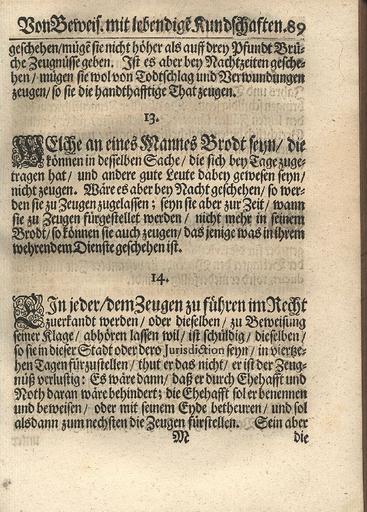 Von Beweis. mit lebendigē Kundschaften. 89
geschehen/ mügē sie nicht höher als auff drey Pfundt Brü-
che Zeugnüsse geben. Ist es aber bey Nachtzeiten gesche-
hen/ mügen sie wol von Todtschlag und Verwundungen
zeugen/ so sie die handthafftige That zeugen.
13.
WElche an eines Mannes Brodt seyn/ die
können in desselben Sache/ die sich bey Tage zuge-
tragen hat/ und andere gute Leute dabey gewesen seyn/
nicht zeugen. Wäre es aber bey Nacht geschehen/ so wer-
den sie zu Zeugen zugelassen; seyn sie aber zur Zeit/ wann
sie zu Zeugen fürgestellet werden/ nicht mehr in seinem
Brodt/ so können sie auch zeugen/ das jenige was in ihrem
wehrendem Dienste geschehen ist.
14.
EIn jeder/ dem Zeugen zu führen im Recht
zuerkandt werden/ oder dieselben/ zu Beweisung
seiner Klage/ abhören lassen wil/ ist schüldig/ dieselben/
so sie in dieser Stadt oder dero Jurisdiction seyn/ in viertze-
hen Tagen fürzustellen/ thut er das nicht/ er ist der Zeug-
nüß verlustig: Es wäre dann/ daß er durch Ehehafft und
Noth daran wäre behindert; die Ehehafft sol er benennen
und beweisen/ oder mit seinem Eyde betheuren/ und sol
alsdann zum nechsten die Zeugen fürstellen. Sein aber
M die